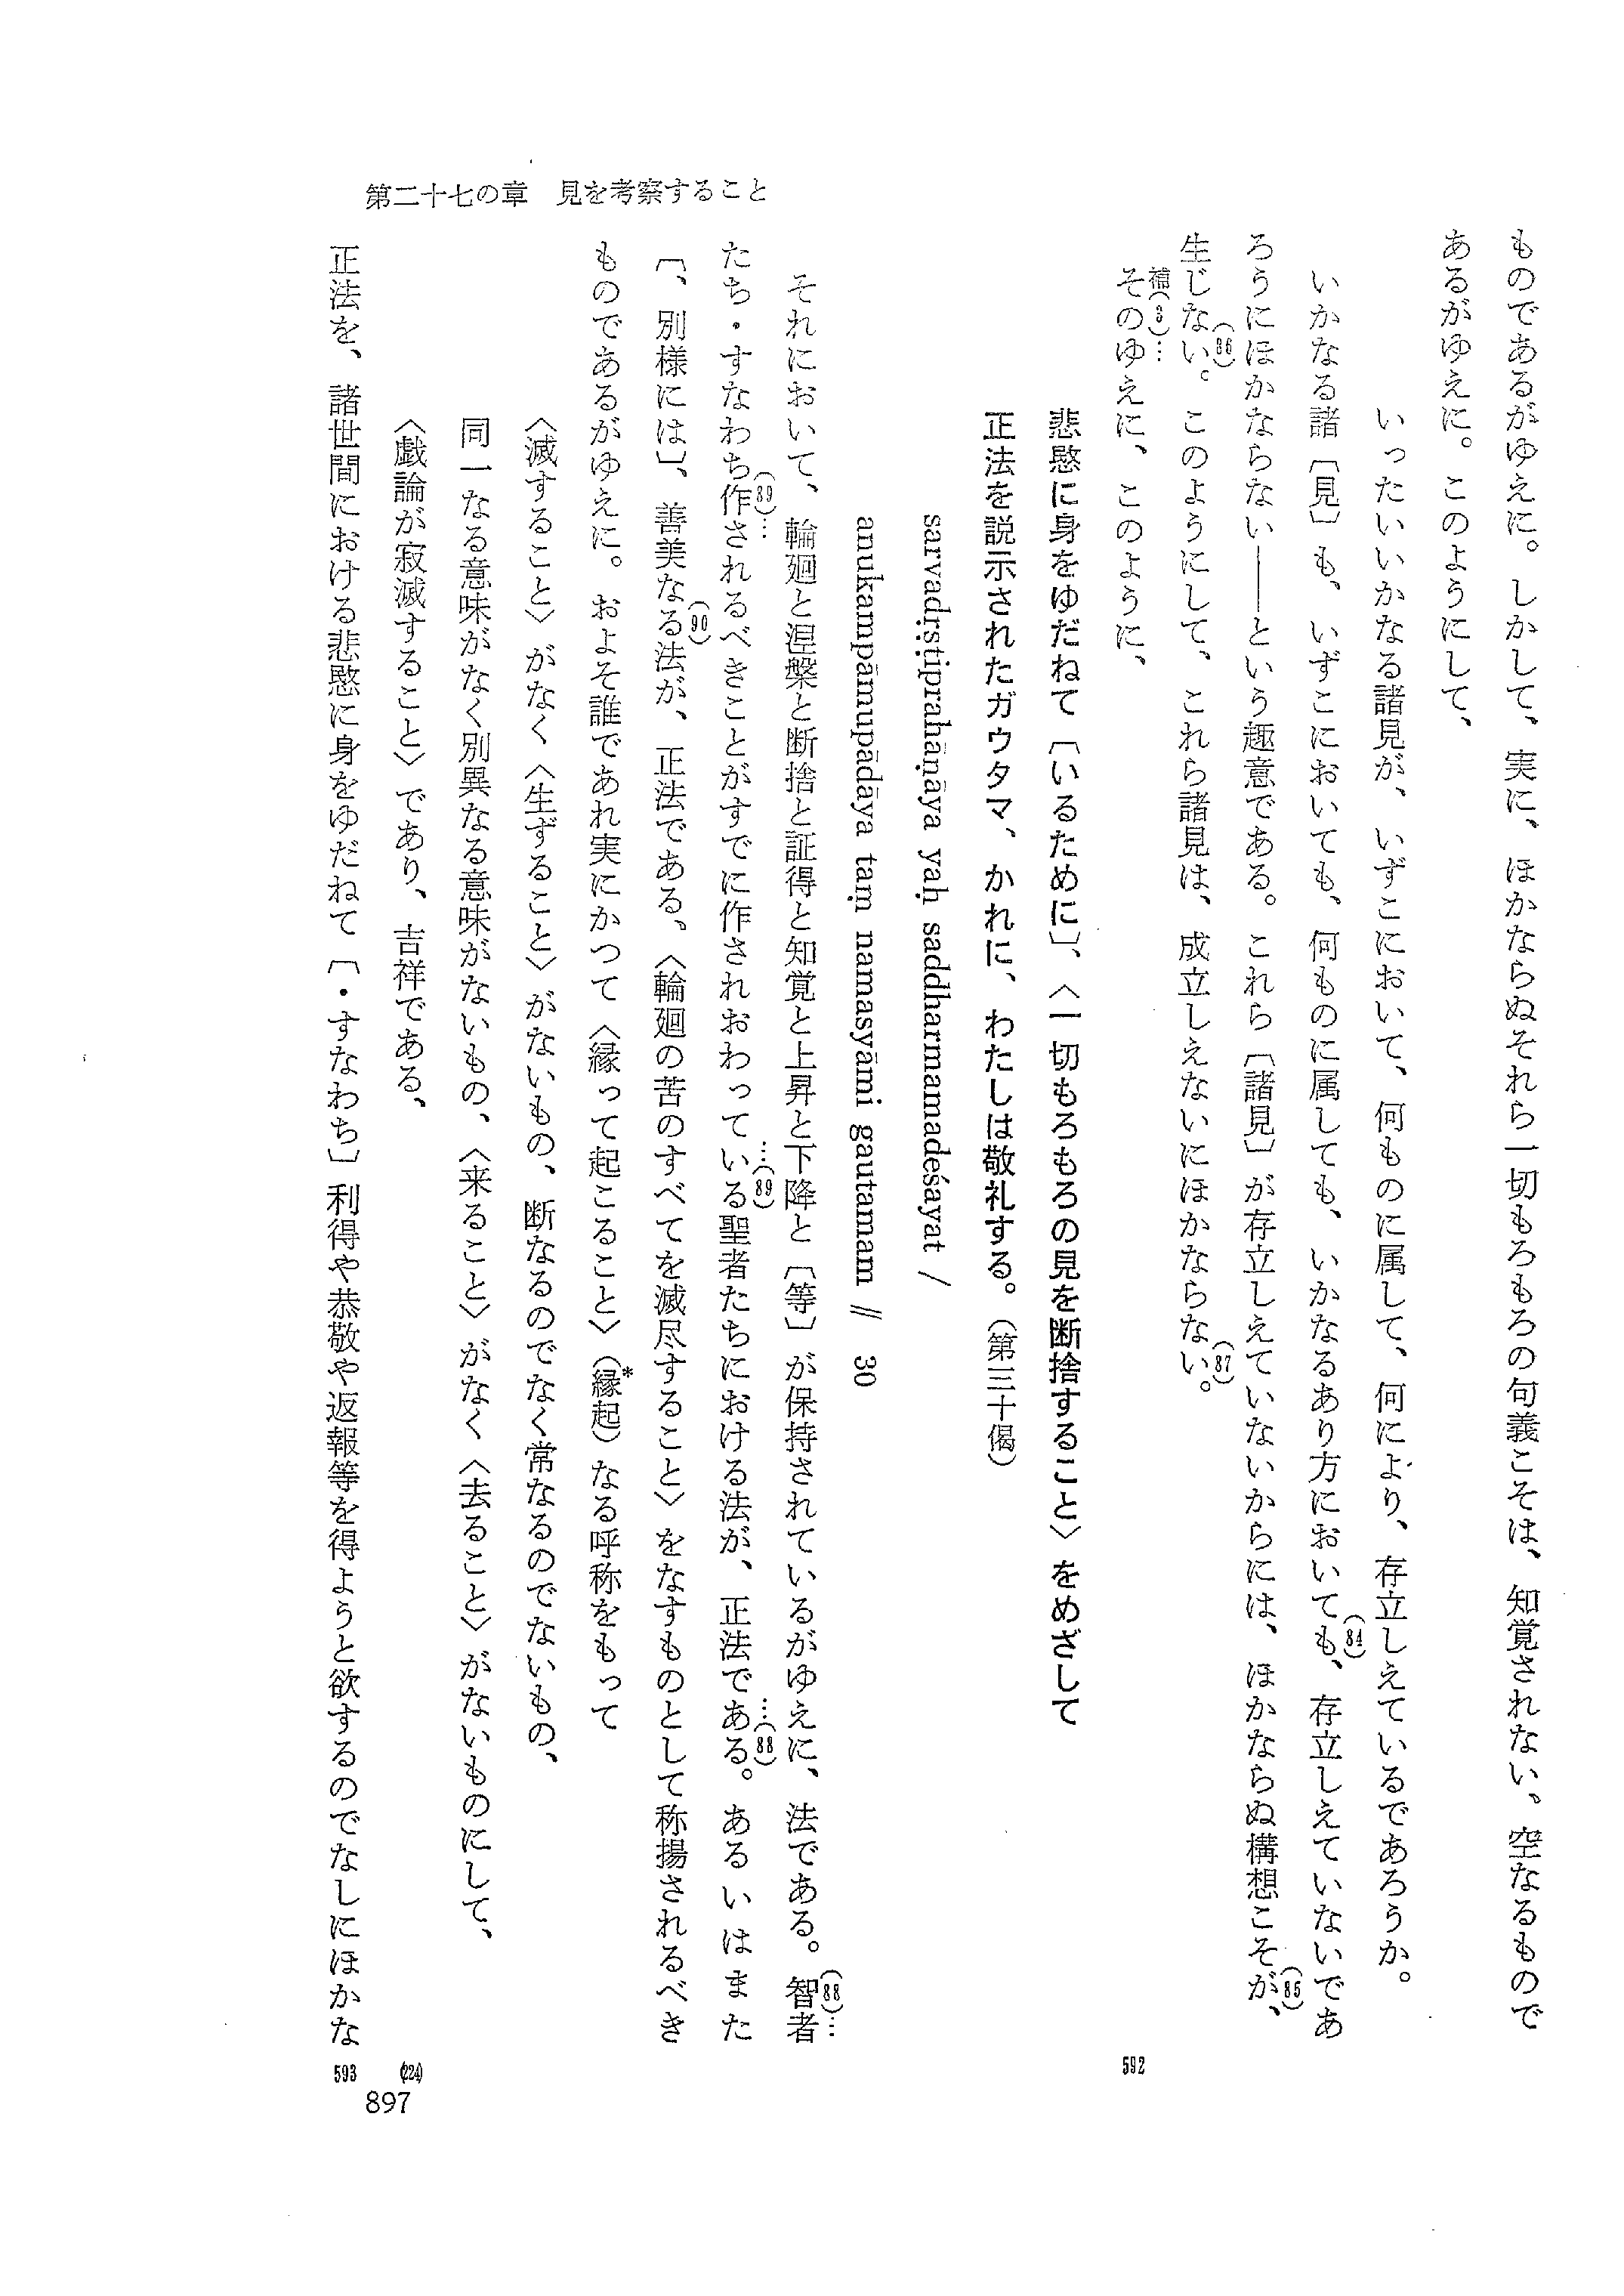 第二十七の章　見を考察すること
ものであるがゆえに。しかして、実に、ほかならぬそれら一切もろもろの句義こそは、知覚されない、空なるもので
あるがゆえに。このようにして、
いったいいかなる諸見が、いずこにおいて、何ものに属して、何により、存立しえているであろうか。
いかなる諸〔見〕も、いずこにおいても、何ものに属しても、いかなるあり方においても(84)、存立しえていないであ
ろうにほかならない――という趣意である。これら〔諸見〕が存立しえていないからには、ほかならぬ構想こそが(85)、
生じない(86)。このようにして、これら諸見は、成立しえないにほかならない(87)。
補(3)…そのゆえに、このように、
悲愍に身をゆだねて〔いるために〕、〈一切もろもろの見を断捨すること〉をめざして
正法を説示されたガウタマ、かれに、わたしは敬礼する。（第三十偈）
sarvadṛṣṭiprahāṇāya yaḥ saddharmamadeśayat /
anukampāmupādāya taṃ namasyāmi gautamam // 30
それにおいて、輪廻と涅槃と断捨と証得と知覚と上昇と下降と〔等〕が保持されているがゆえに、法である。(88)…智者
たち・すなわち(89)…作されるべきことがすでに作されおわっている…(89)聖者たちにおける法が、正法である…(88)。あるいはまた
〔、別様には〕、善美なる(90)法が、正法である、〈輪廻の苦のすべてを滅尽すること〉をなすものとして称揚されるべき
ものであるがゆえに。およそ誰であれ実にかつて〈縁って起こること〉（縁起*）なる呼称をもって
〈滅すること〉がなく〈生ずること〉がないもの、断なるのでなく常なるのでないもの、
同一なる意味がなく別異なる意味がないもの、〈来ること〉がなく〈去ること〉がないものにして、
〈戯論が寂滅すること〉であり、吉祥である、
正法を、諸世間における悲愍に身をゆだねて〔・すなわち〕利得や恭敬や返報等を得ようと欲するのでなしにほかな
592
(224)
593
897